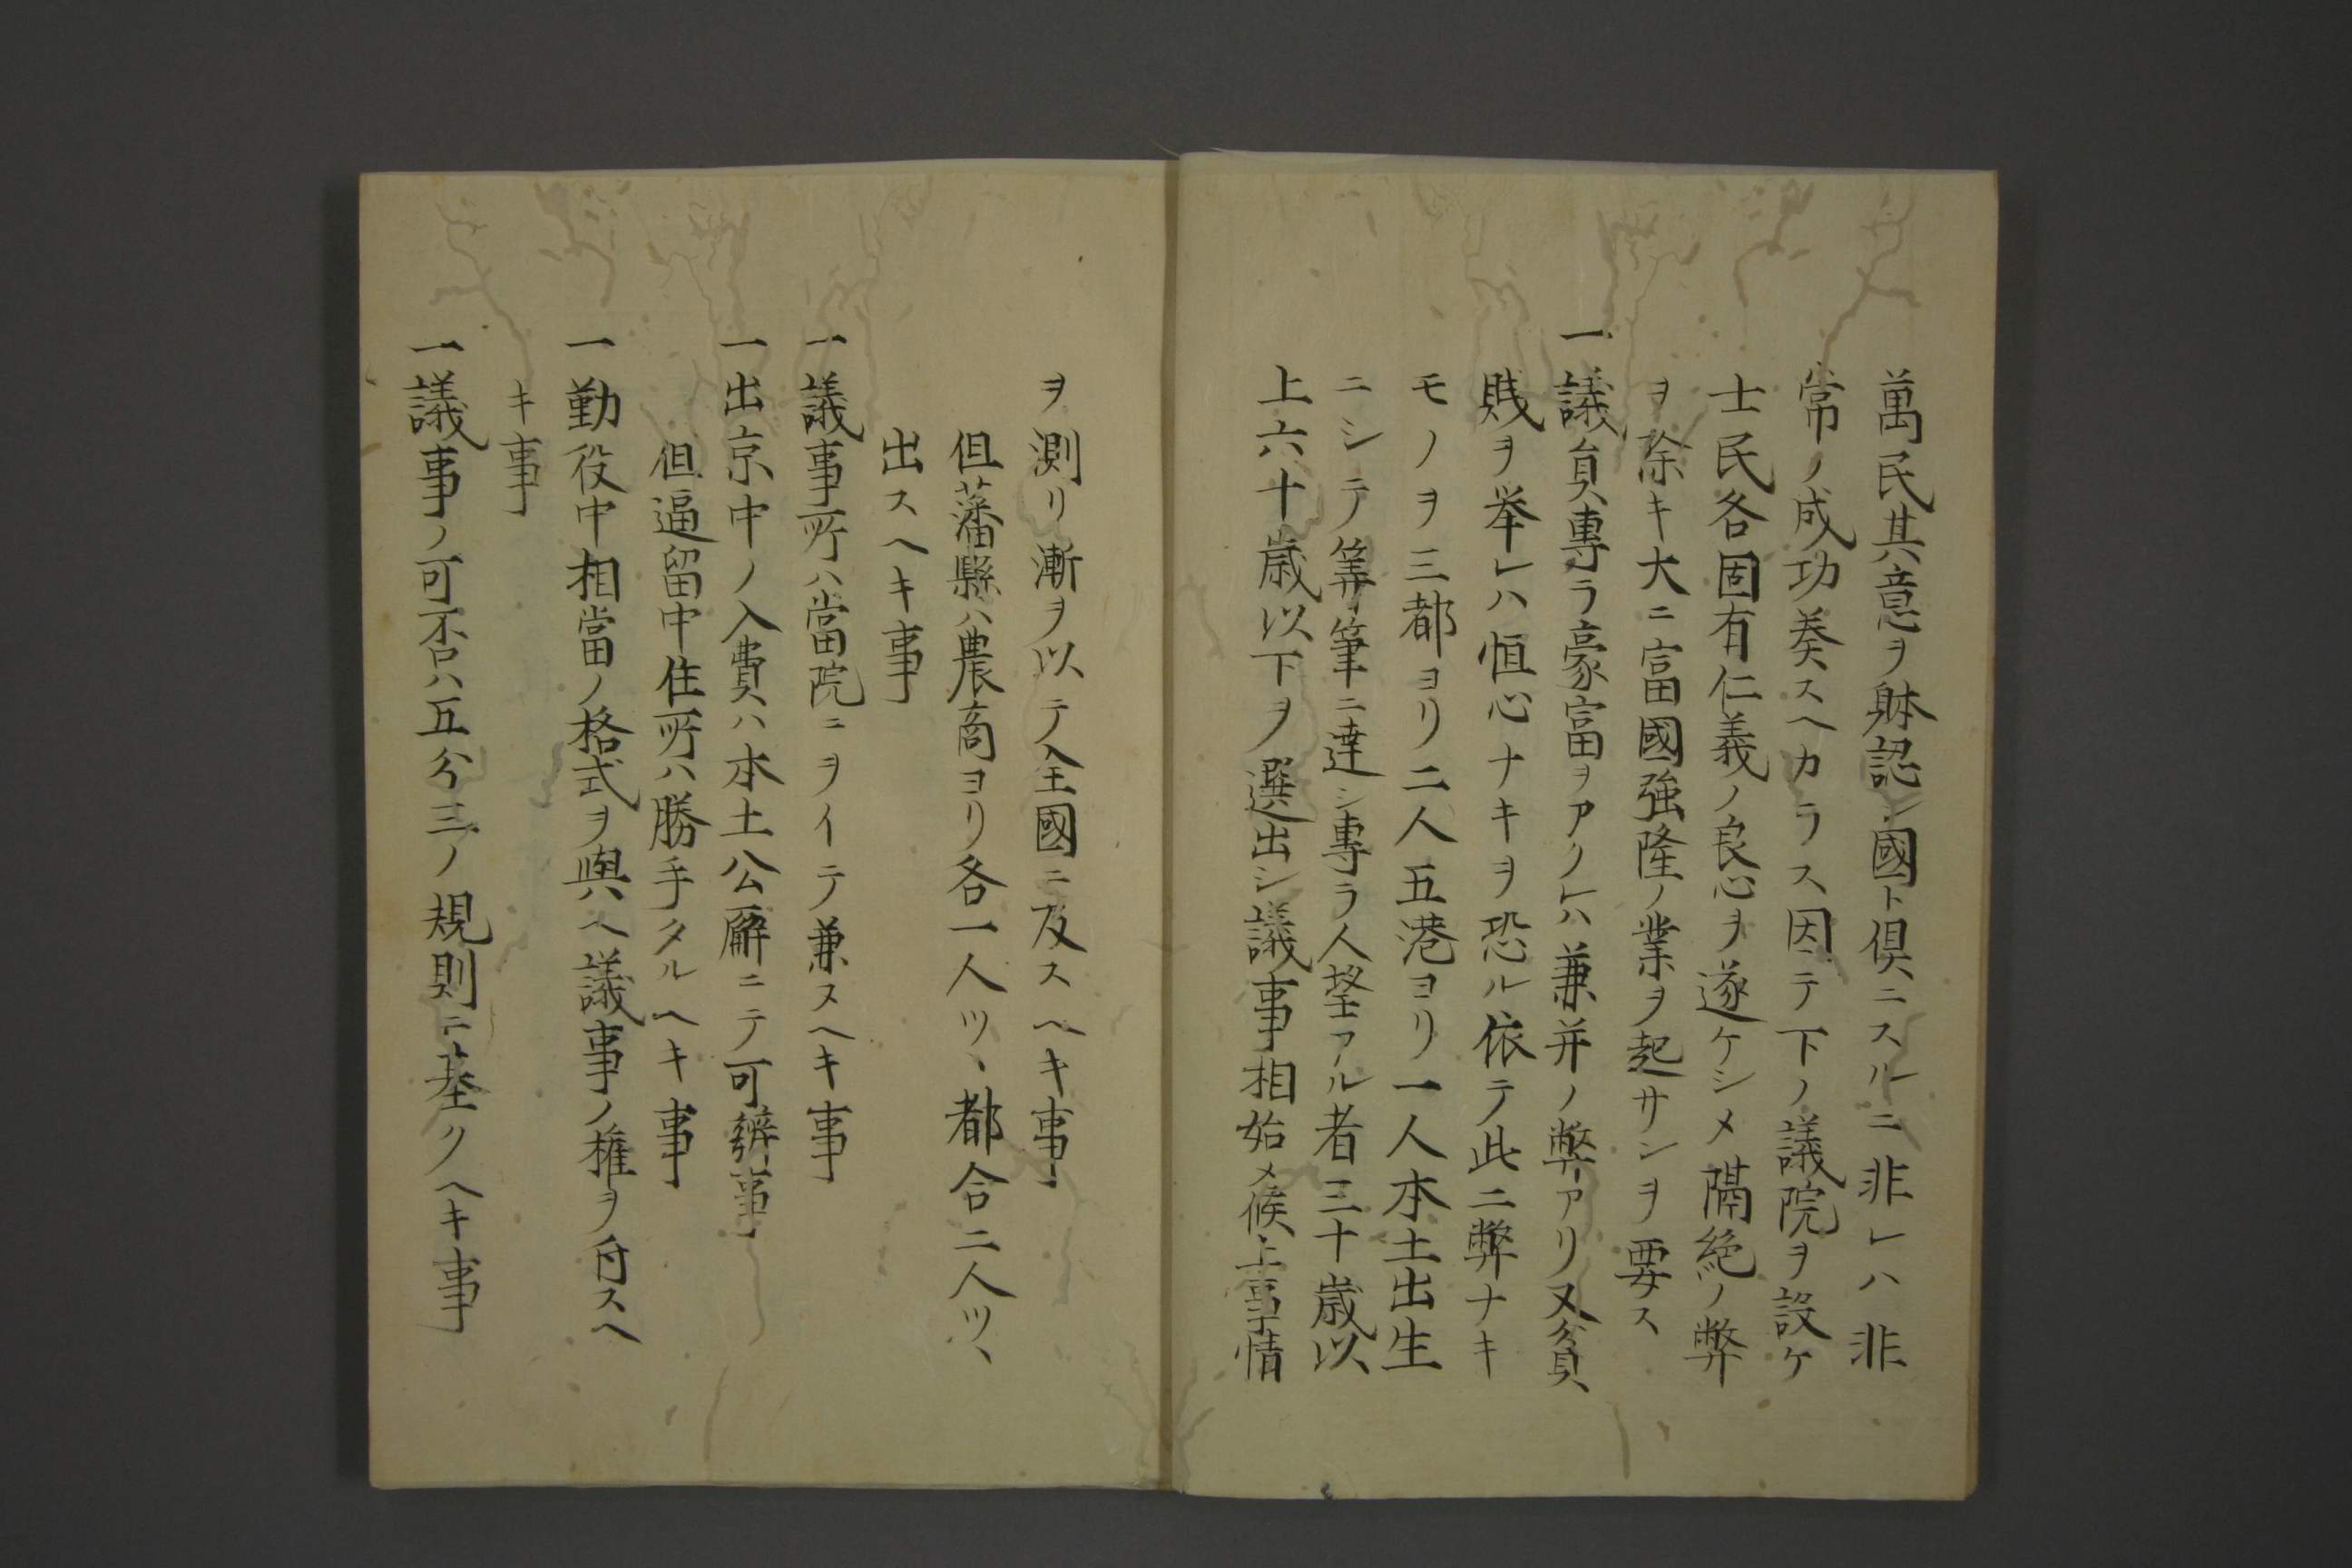 萬民其意ヲ躰認シ國ト倶ニスルニ非レハ非
常ノ成功奏スヘカラス因テ下ノ議院ヲ設ケ
士民各固有仁義ノ良心ヲ遂ケシメ隔絶ノ弊
ヲ除キ大ニ富國強隆ノ業ヲ起サンヲ要ス
一議員專ラ豪富ヲアクレハ兼并ノ弊アリ又貧
賤ヲ举レハ恒心ナキヲ恐ル依テ此二弊ナキ
モノヲ三都ヨリ二人五港ヨリ一人本土出生
ニシテ筭筆ニ達シ專ラ人望アル者三十歳以
上六十歳以下ヲ選出シ議事相始メ候上事情
ヲ測リ漸ヲ以テ全國ニ及スヘキ事
但藩縣ハ農商ヨリ各一人ツヽ都合二人ツヽ
出スヘキ事
一議事所ハ當院ニヲイテ兼ヌヘキ事
一出京中ノ入費ハ本土公廨ニテ可辨事
但逼留中住所ハ勝手タルヘキ事
一勤役中相當ノ格式ヲ與ヘ議事ノ權ヲ付スヘ
キ事
一議事ノ可否ハ五分三ノ規則ニ基クヘキ事